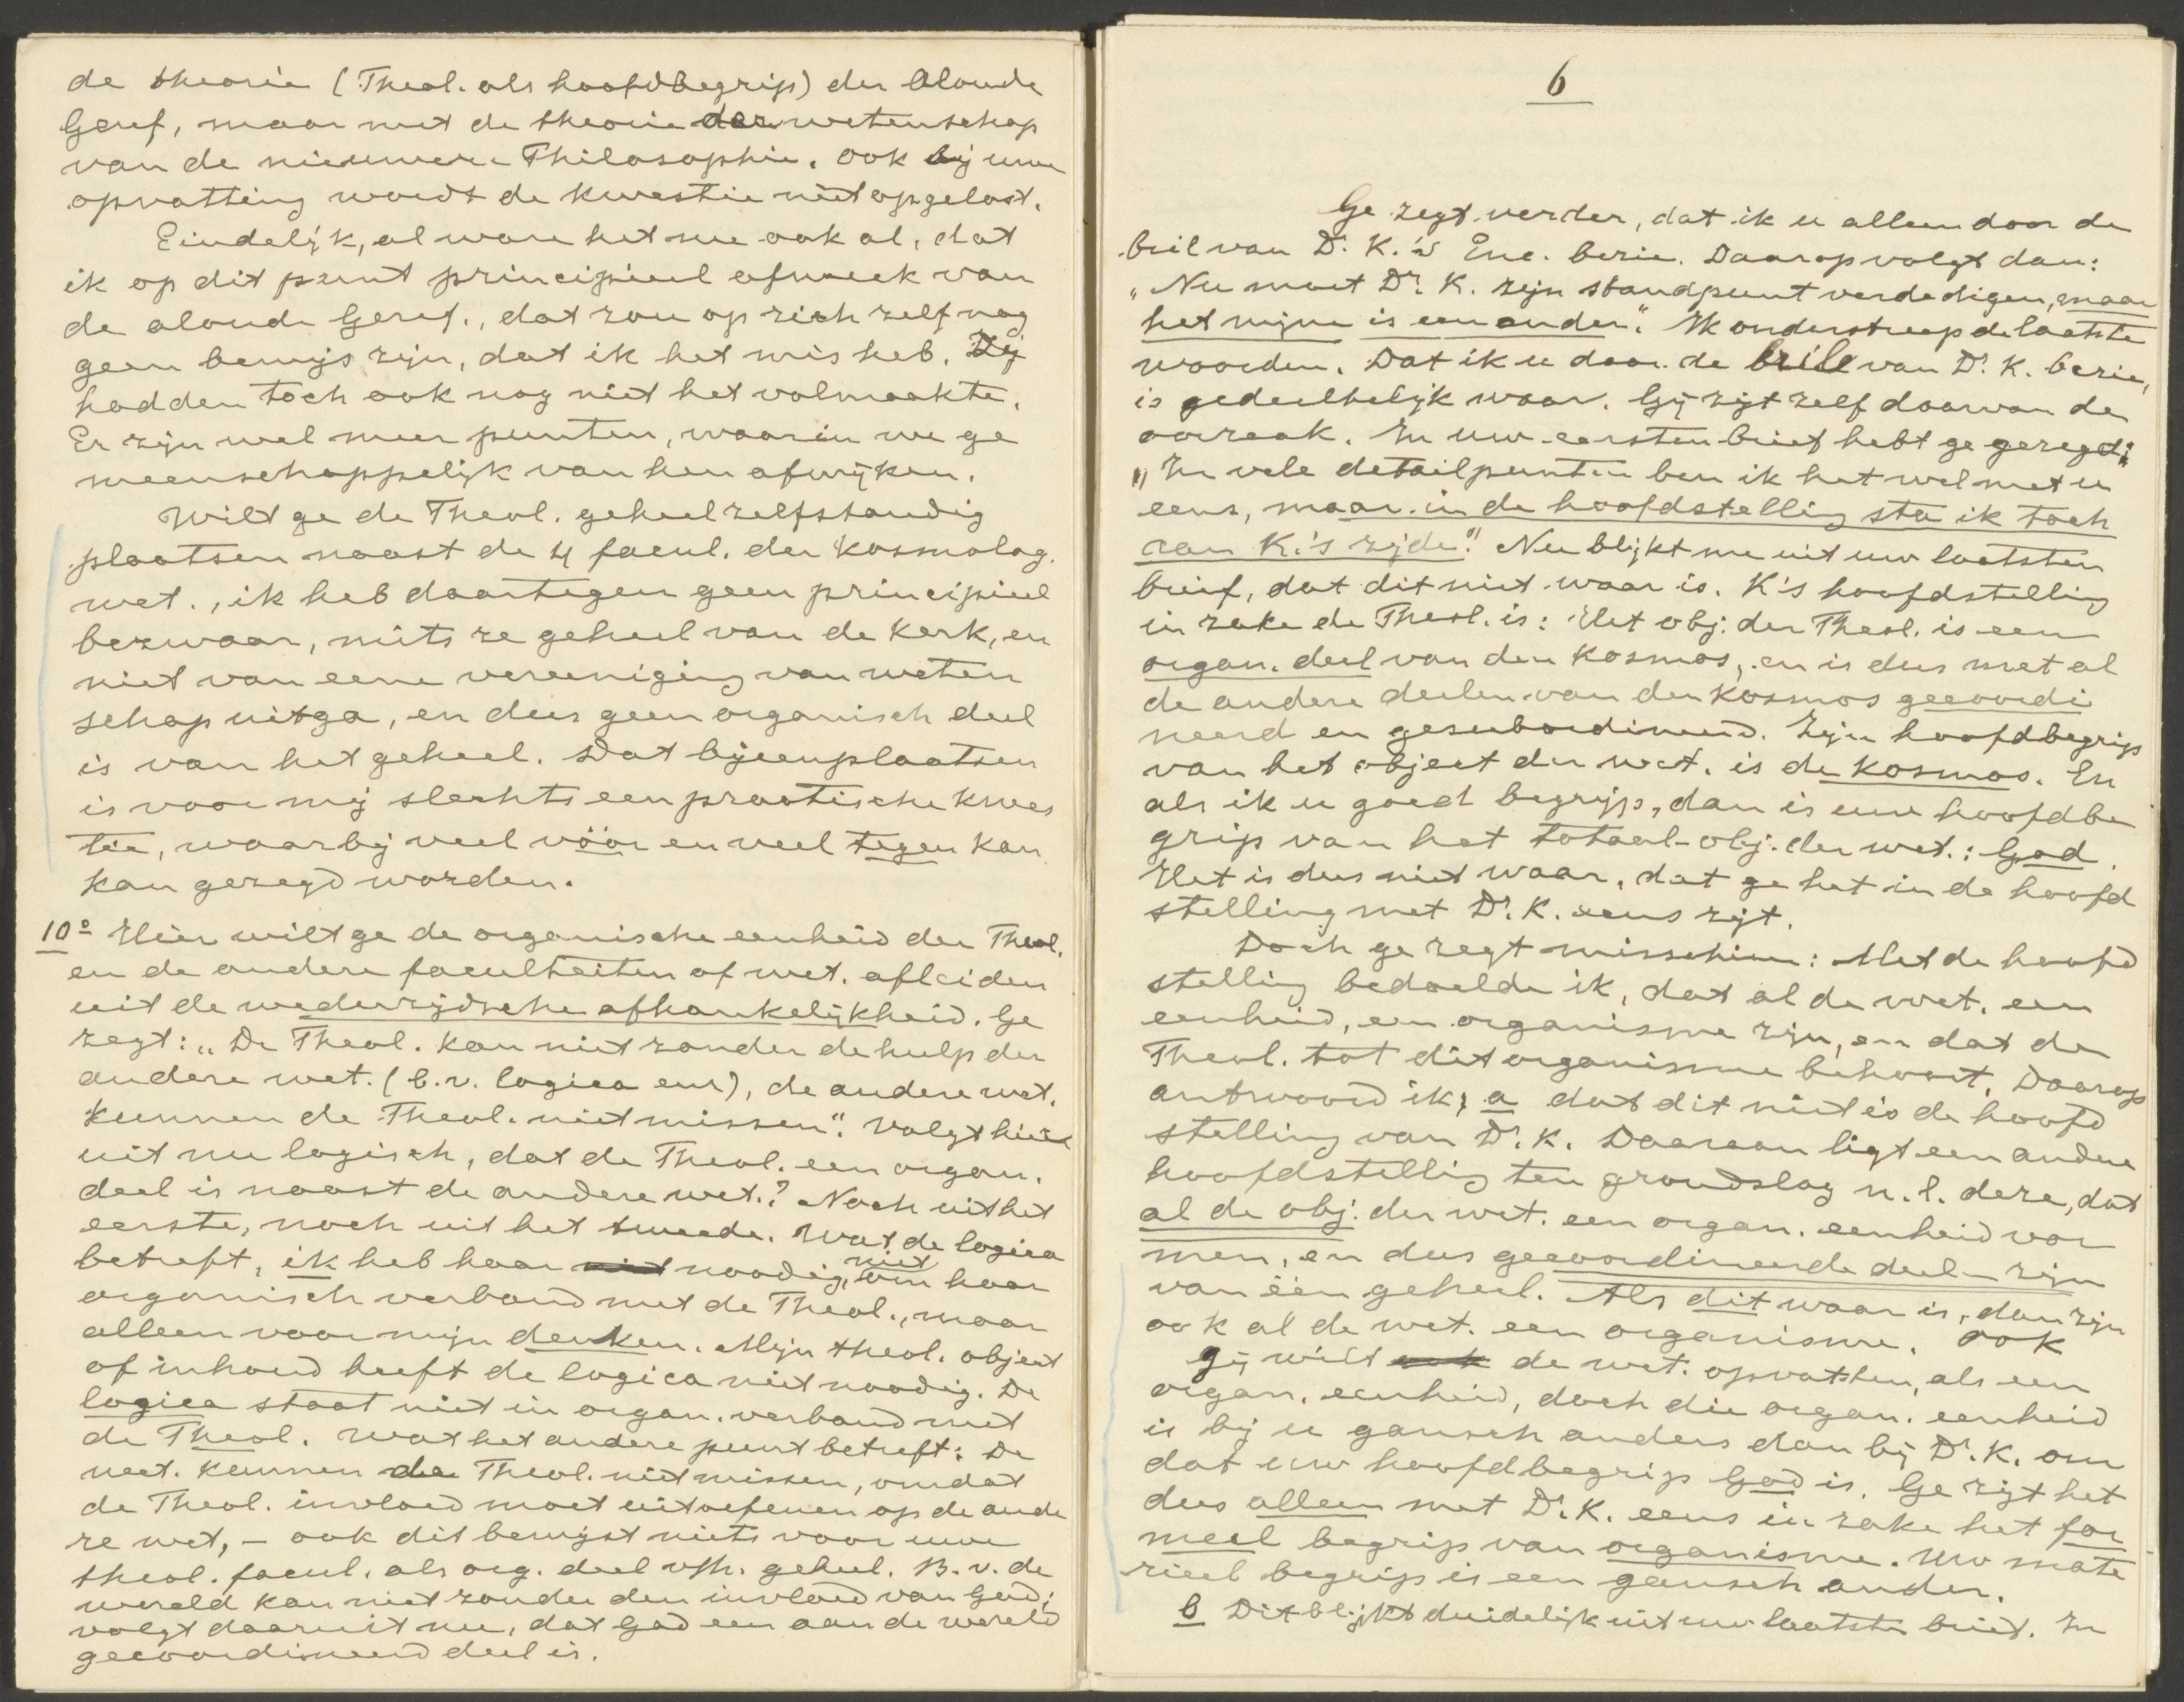 de theorie (Theol. als hoofdbegrip) der aloude
Geref, maar met de theorie der wetenschap
van de nieuwere Philosophie. Ook bij uwe
opvatting wordt de kwestie niet opgelost.
Eindelijk, al ware het nu ook al, dat
ik op dit punt principieel afweek van
de aloude Geref., dat zou op zich zelf nog
geen bewijs zijn, dat ik het mis heb. Zij
hadden toch ook nog niet het volmaakte.
Er zijn wel meer punten, waarin we ge
meenschappelijk van hen afwijken.
Wilt ge de Theol. geheel zelfstandig
plaatsen naast de 4 facul. der kosmolog.
wet., ik heb daartegen geen principieel
bezwaar, mits ze geheel van de Kerk, en
niet van eene vereeniging van weten
schap uitga, en dus geen organisch deel
is van het geheel. Dat bijeenplaatsen
is voor mij slechts een practische kwes
tie, waarbij veel vóór en veel tegen kan
kan gezegd worden.
10° Hier wilt ge de organische eenheid der Theol.
en de andere faculteiten of wet. afleiden
uit de wederzijdsche afhankelijkheid. Ge
zegt: „De Theol. kan niet zonder de hulp der
andere wet. (b.v. logica enz), de andere wet.
kunnen de Theol. niet missen". Volgt hier
uit nu logisch, dat de Theol. een organ.
deel is naast de andere wet.? Noch uit het
eerste, noch uit het tweede. Wat de logica
betreft, ik heb haar niet noodig, niet om haar
organisch verband met de Theol., maar
alleen voor mijn denken. Mijn theol. object
of inhoud heeft de logica niet noodig. De
logica staat niet in organ. verband met
de Theol. Wat het andere punt betreft: De
wet. kunnen de Theol. niet missen, omdat
de Theol. invloed moet uitoefenen op de ande
re wet, – ook dit bewijst niets voor uwe
theol. facul. als org. deel v/h. geheel. B.v. de
wereld kan niet zonder den invloed van God;
volgt daaruit nu, dat God een aan de wereld
gecoordineerd deel is.
6
Ge zegt verder, dat ik u alleen door de
bril van Dr. K.'s Enc. bezie. Daarop volgt dan:
„Nu moet Dr. K. zijn standpunt verdedigen, maar
het mijne is een ander". Ik onderstreep de laatste
woorden. Dat ik u door de bril van Dr. K. bezie,
is gedeeltelijk waar. Gij zijt zelf daarvan de
oorzaak. In uw eersten brief hebt ge gezegd:
„In vele detailpunten ben ik het wel met u
eens, maar in de hoofdstelling sta ik toch
aan K.'s zijde". Nu blijkt me uit uw laatsten
brief, dat dit niet waar is. K's hoofdstelling
in zake de Theol. is: Het obj. der Theol. is een
organ. deel van den kosmos, en is dus met al
de andere deelen van den kosmos gecoordi
neerd en gesubordineerd. Zijn hoofdbegrip
van het object der wet. is de kosmos. En
als ik u goed begrijp, dan is uw hoofdbe
grip van het totaal-obj. der wet.: God.
Het is dus niet waar, dat ge het in de hoofd
stelling met Dr. K. eens zijt.
Doch ge zegt misschien: Met de hoofd
stelling bedoelde ik, dat al de wet. een
eenheid, een organisme zijn, en dat de
Theol. tot dit organisme behoort. Daarop
antwoord ik; a dat dit niet is de hoofd
stelling van Dr. K. Daaraan ligt een andere
hoofdstelling ten grondslag n.l. deze, dat
al de obj. der wet. een organ. eenheid vor
men, en dus gecoordineerde deel– zijn
van één geheel. Als dit waar is, dan zijn
ook al de wet. een organisme. Ook
gij wilt ook de wet. opvatten, als een
organ. eenheid, doch die organ. eenheid
is bij u gansch anders dan bij Dr. K. om
dat uw hoofdbegrip God is. Ge zijt het
dus alleen met Dr. K. eens in zake het for
meel begrip van organisme. Uw mate
rieel begrip is een gansch ander.
b Dit blijkt duidelijk uit uw laatste brief. In